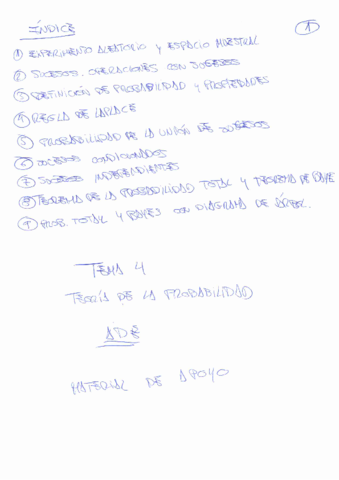 ÍNDICE
①
① EXPERIMENTO ALEATORIO Y ESPACIO MUESTRAL
② SUCESOS. OPERACIONES CON SUCESOS
③ DEFINICIÓN DE PROBABILIDAD Y PROPIEDADES
④ REGLA DE LAPLACE
⑤ PROBABILIDAD DE LA UNIÓN DE SUCESOS
⑥ SUCESOS CONDICIONADOS
⑦ SUCESOS INDEPENDIENTES
⑧ TEOREMA DE LA PROBABILIDAD TOTAL Y TEOREMA DE BAYES
⑨ PROB. TOTAL Y BAYES CON DIAGRAMA DE ÁRBOL.
TEMA 4
TEORÍA DE LA PROBABILIDAD
ADE
MATERIAL DE APOYO